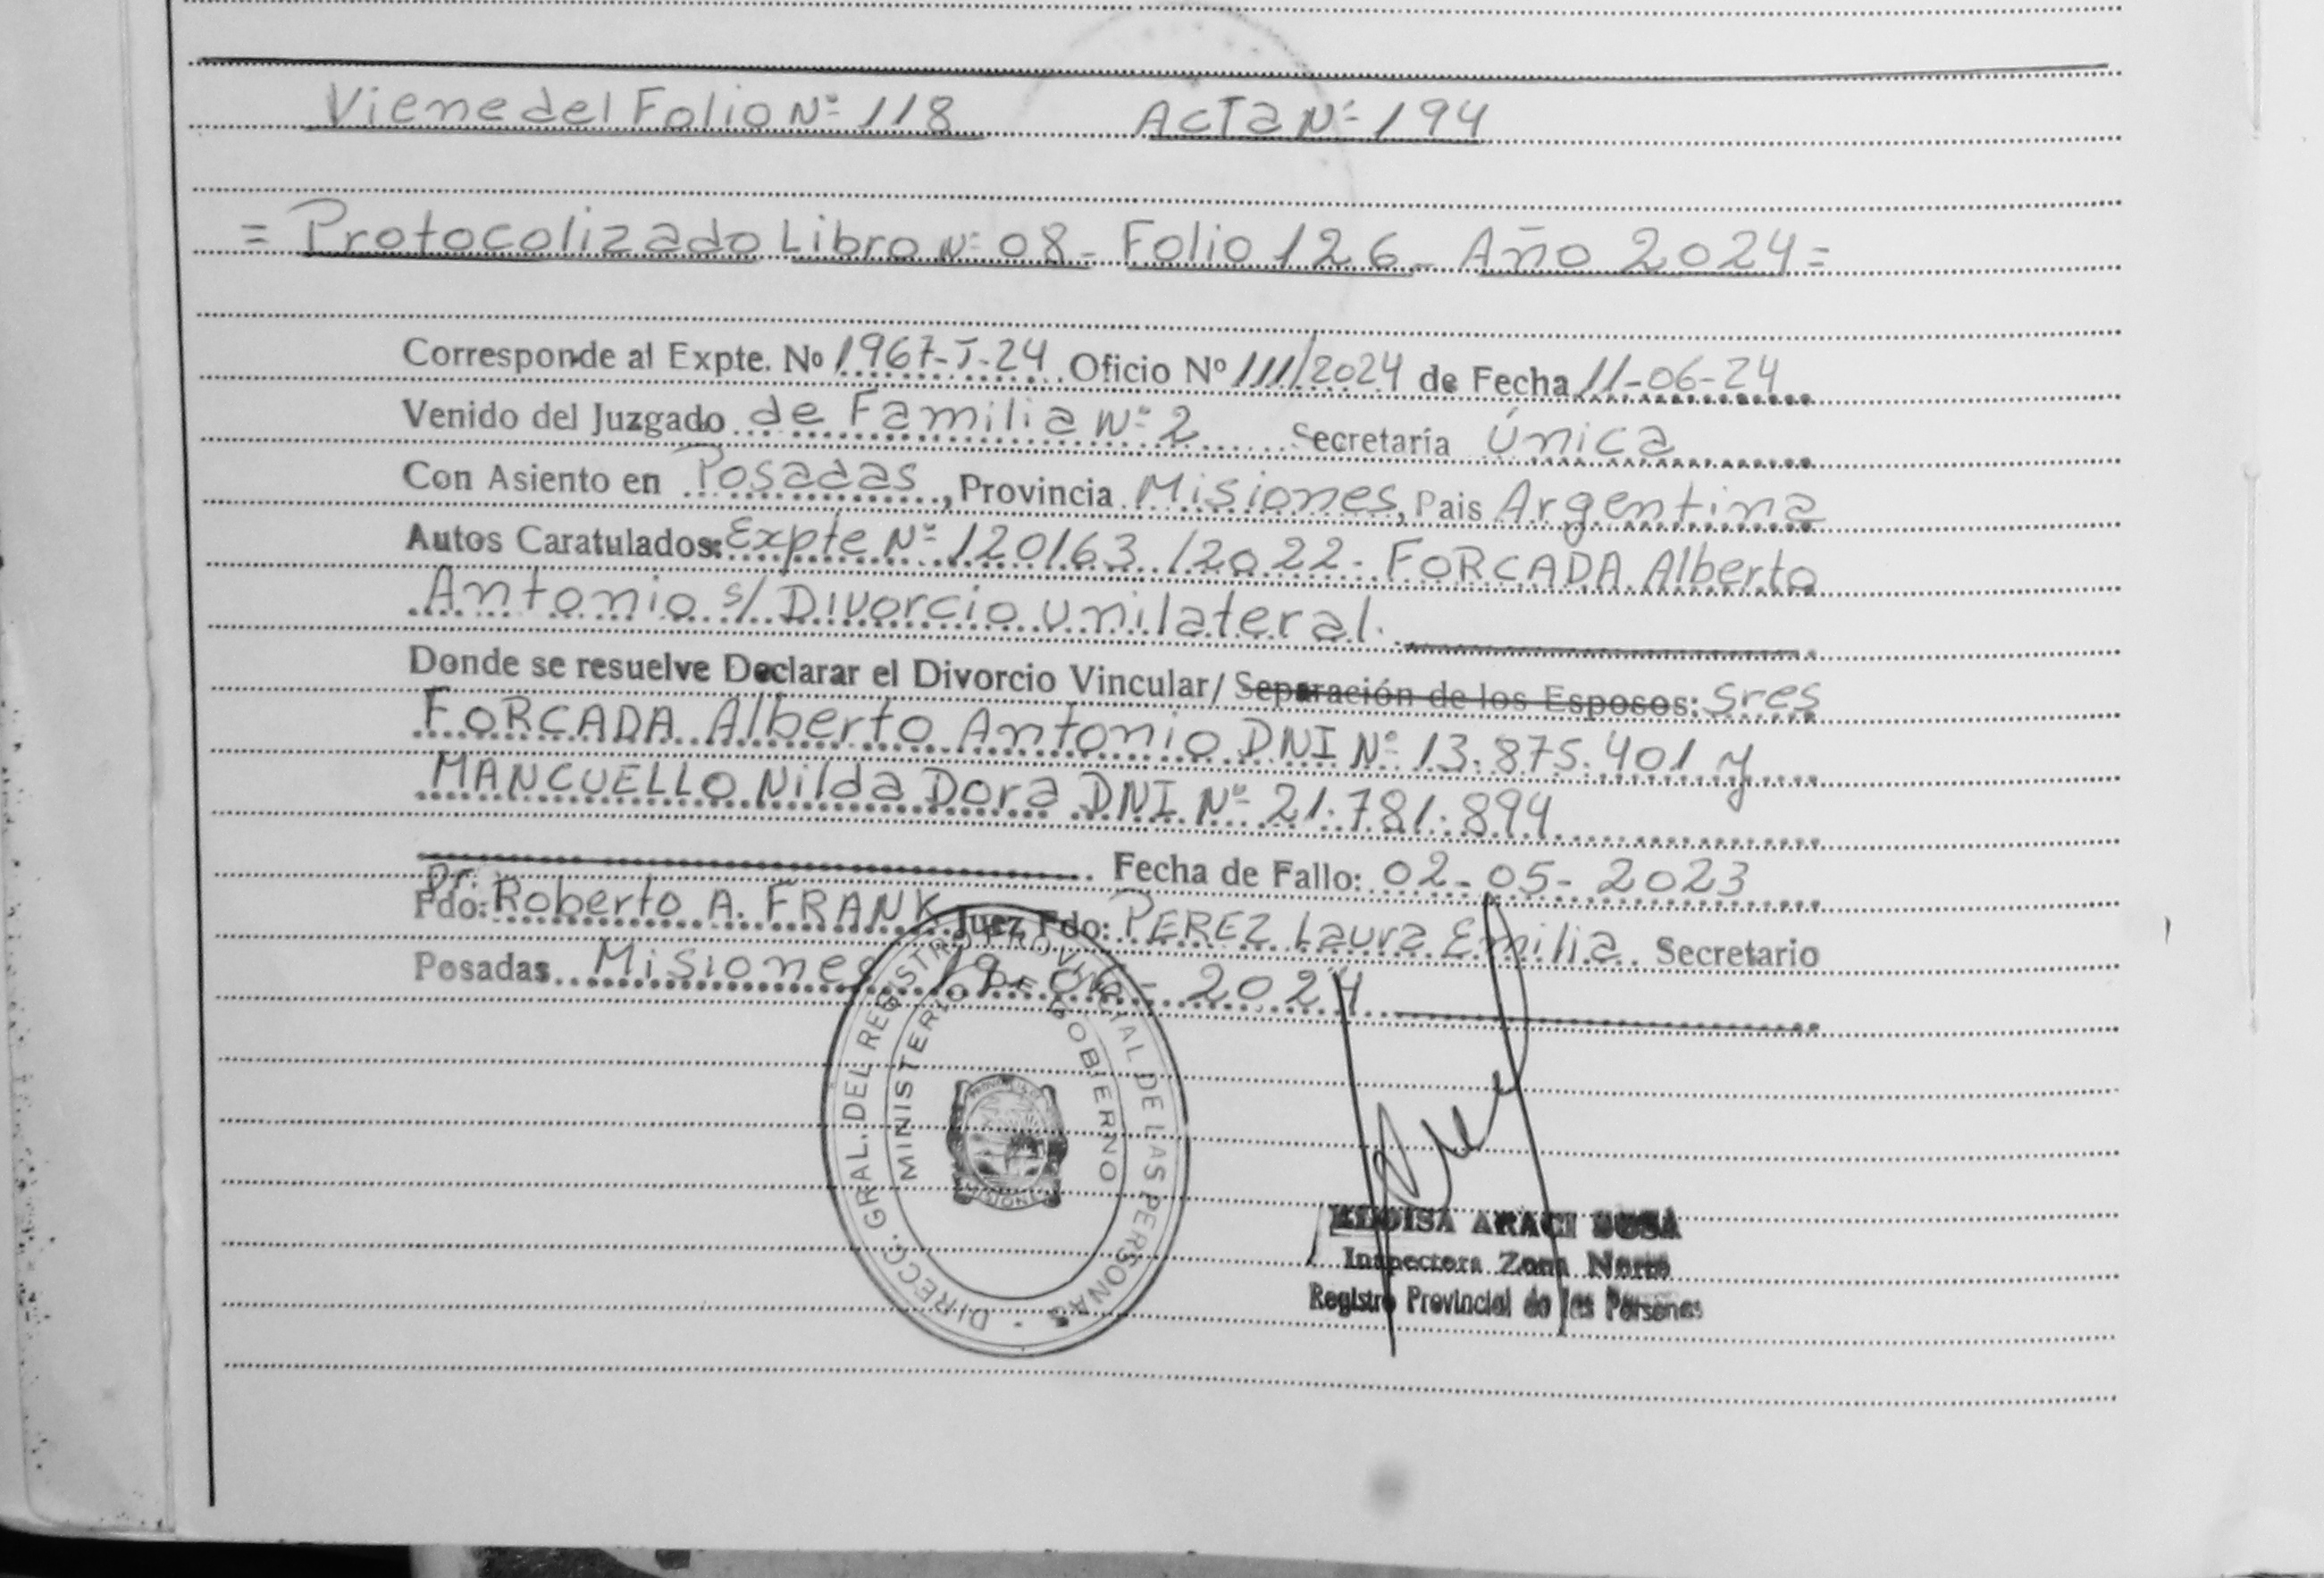 Viene del Folio Nº 118 Acta Nº 194
= Protocolizado Libro Nº 08 - Folio 126 - Año 2024 =
Corresponde al Expte. Nº 1967-J-24 Oficio Nº 111/2024 de Fecha 11-06-24
Venido del Juzgado de Familia Nº 2 Secretaría Única
Con Asiento en Posadas, Provincia Misiones, Pais Argentina
Autos Caratulados: Expte Nº 120163/2022 - FORCADA Alberto
Antonio s/ Divorcio Unilateral.
Donde se resuelve Declarar el Divorcio Vincular/ Separación de los Esposos: Sres
FORCADA Alberto Antonio DNI Nº 13.875.401 y
MANCUELLO Nilda Dora DNI Nº 21.781.894
Fecha de Fallo: 02-05-2023
Fdo: Dr. Roberto A. FRANK Juez Fdo: PEREZ Laura Emilia Secretario
Posadas Misiones 19 - 2024
DIRECC. GRAL. DEL REGISTRO PROVINCIAL DE LAS PERSONAS
MINISTERIO DE GOBIERNO
MISIONES
ELOISA ARACI SOSA
Inspectora Zona Norte
Registro Provincial de las Personas